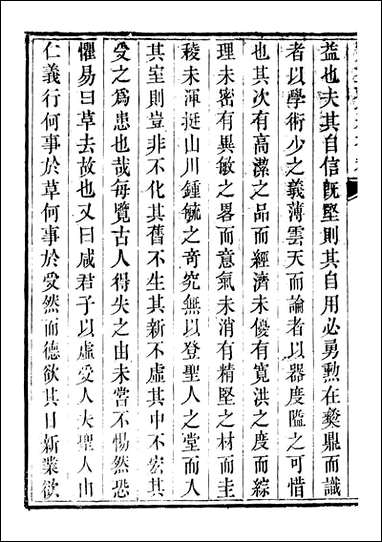 益也夫其自信既堅則其自用必勇勲在彜鼎而識
者以學術少之義薄雲天而論者以器度隘之可惜
也其次有高潔之品而經濟未優有寛洪之度而綜
理未密有異敏之畧而意氣未消有精堅之材而圭
稜未渾挺山川鍾毓之奇究無以登聖人之堂而入
其室則豈非不化其舊不生其新不虛其中不宏其
受之爲患也哉每覽古人得失之由未嘗不惕然恐
懼易曰革去故也又曰咸君子以虛受人夫聖人由
仁義行何事於革何事於受然而德欲其日新業欲